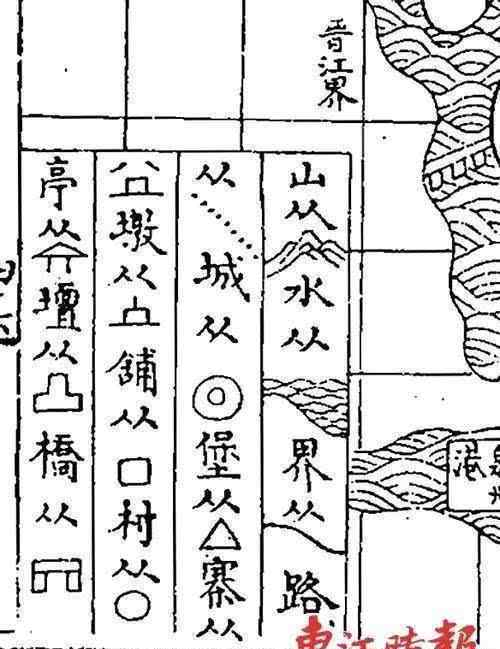 晉江界
山从
水从
界从
路
从
城从
堡从
寨从
墩从
舖从
村从
亭从
壇从
橋从
東江時報